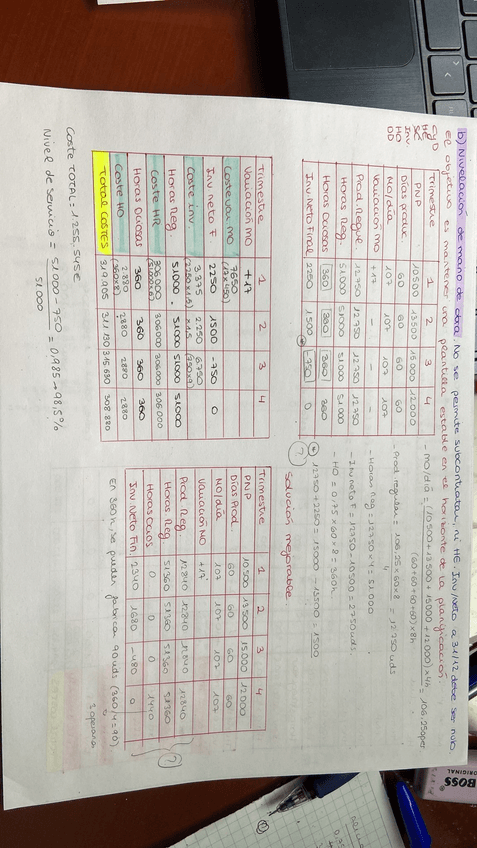 b) Nivelación de mano de obra. No se permite subcontratar, ni HE. Inv. Neto a 31/12 debe ser nulo.
El objetivo es mantener una plantilla estable en el horizonte de la planificación.
CVD
HR
SC
Inv.
HO
DD
Trimestre 1 2 3 4
PNP 10500 13500 15000 12000
Días produc. 60 60 60 60
MO/día 107 107 107 107
Variación MO +17 - - -
Prod Regul. 12750 12750 12750 12750
Horas Reg. 51000 51000 51000 51000
Horas Ociosas 360 360 360 360
Inv Neto Final 2250 1500 -750 0
- MO/día = (10500+13500+15000+12000)x4h / (60+60+60+60)x8h = 106,25 oper
- Prod. regular = 106,25x60x8 / 4 = 12750 uds
- Horas Reg = 12750x4 = 51000
- Inv neto F = 12750-10500 = 2250 uds.
- HO = 0,75x60x8 = 360h
12750+2250 = 15000 - 13500 = 1500
?
Trimestre 1 2 3 4
Variación MO +17
Coste var. MO 7650 (17x450)
Inv neto F 2250 1500 -750 0
Coste inv. 3375 (2250x1,5) 2250 x1,5 6750 (750x9)
Horas Reg. 51000 51000 51000 51000
Coste HR 306000 (51000x6) 306000 306000 306000
Horas Ociosas 360 360 360 360
Coste HO 2880 (360x8) 2880 2880 2880
TOTAL COSTES 319.905 311.130 315.630 308.880
Coste TOTAL: 1.255.545€
Nivel de servicio = 51000-750 / 51.000 = 0,985 → 98,5%
Solución mejorable
Trimestre 1 2 3 4
PNP 10500 13500 15000 12000
Días Prod. 60 60 60 60
MO/día 107 107 107 107
Variación MO +17
Prod Reg. 12840 12840 12840 12840
Horas Reg 51360 51360 51360 51360
Horas Ocias 0 0 0 1440
Inv Neto Fin. 2340 1680 -480 0
?
En 360h se pueden fabricar 90 uds (360/4=90)
BOSS
ORIGINAL